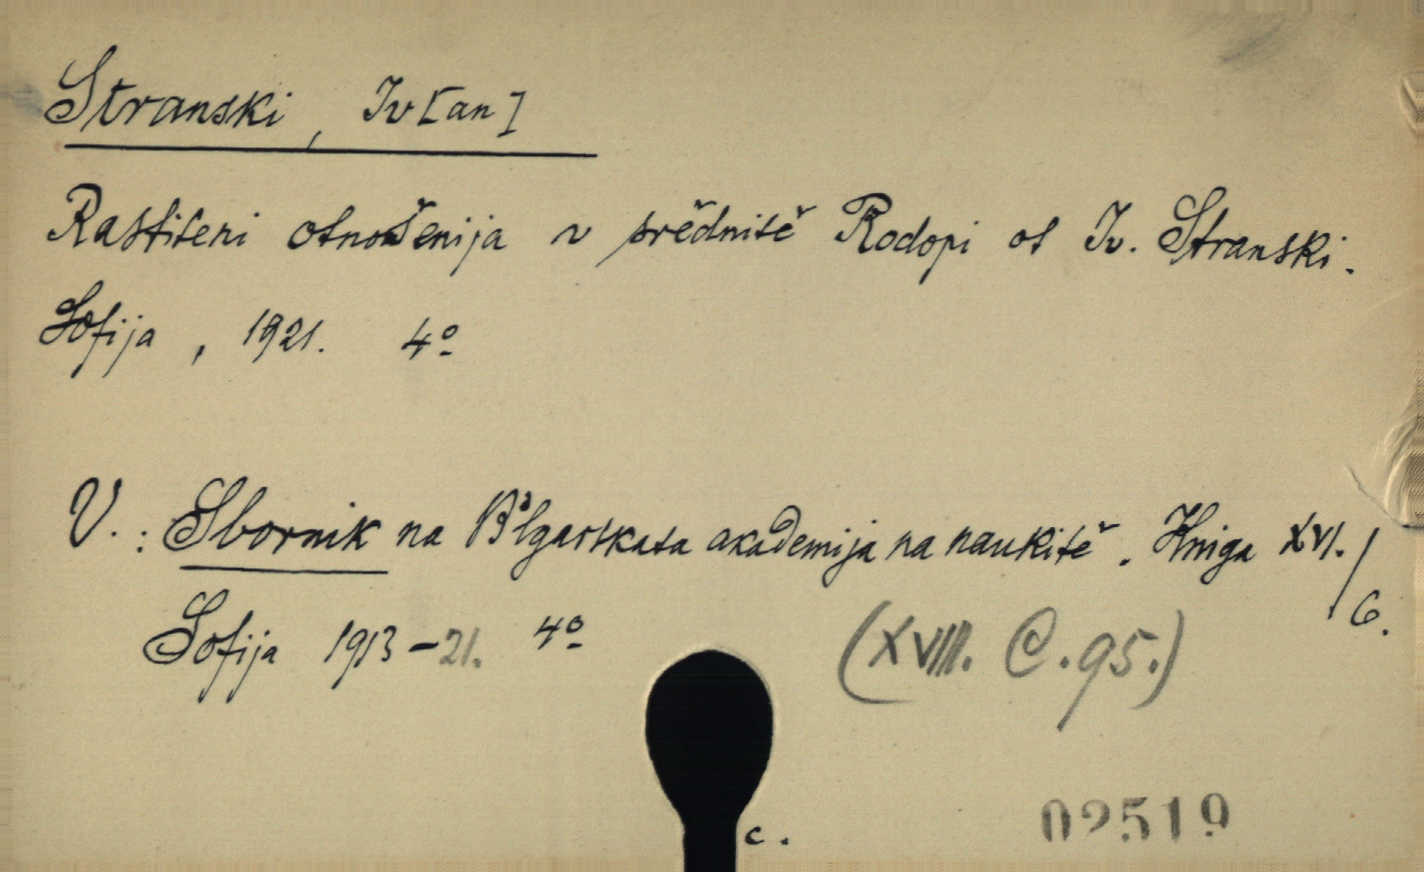 Stranski, Iv[an]
Rastiteni otnošenija v srědnitě Rodopi ot Iv. Stranski.
Sofija, 1921. 4º
V.: Sbornik na Bʼlgarskata akademija na naukitě. Kniga XVI./6.
Sofija 1913-21. 4º
(XVIII. C. 95.)
c.
02519